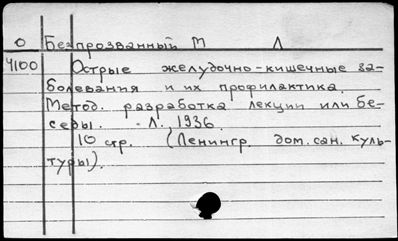 О Безпрозванный М Л
4100 Острые желудочно-кишечные за-
болевания и их профилактика.
Метод. разработка лекции или бе-
седы. - Л. 1936.
10 стр. (Ленингр. дом. сан. куль-
туры).